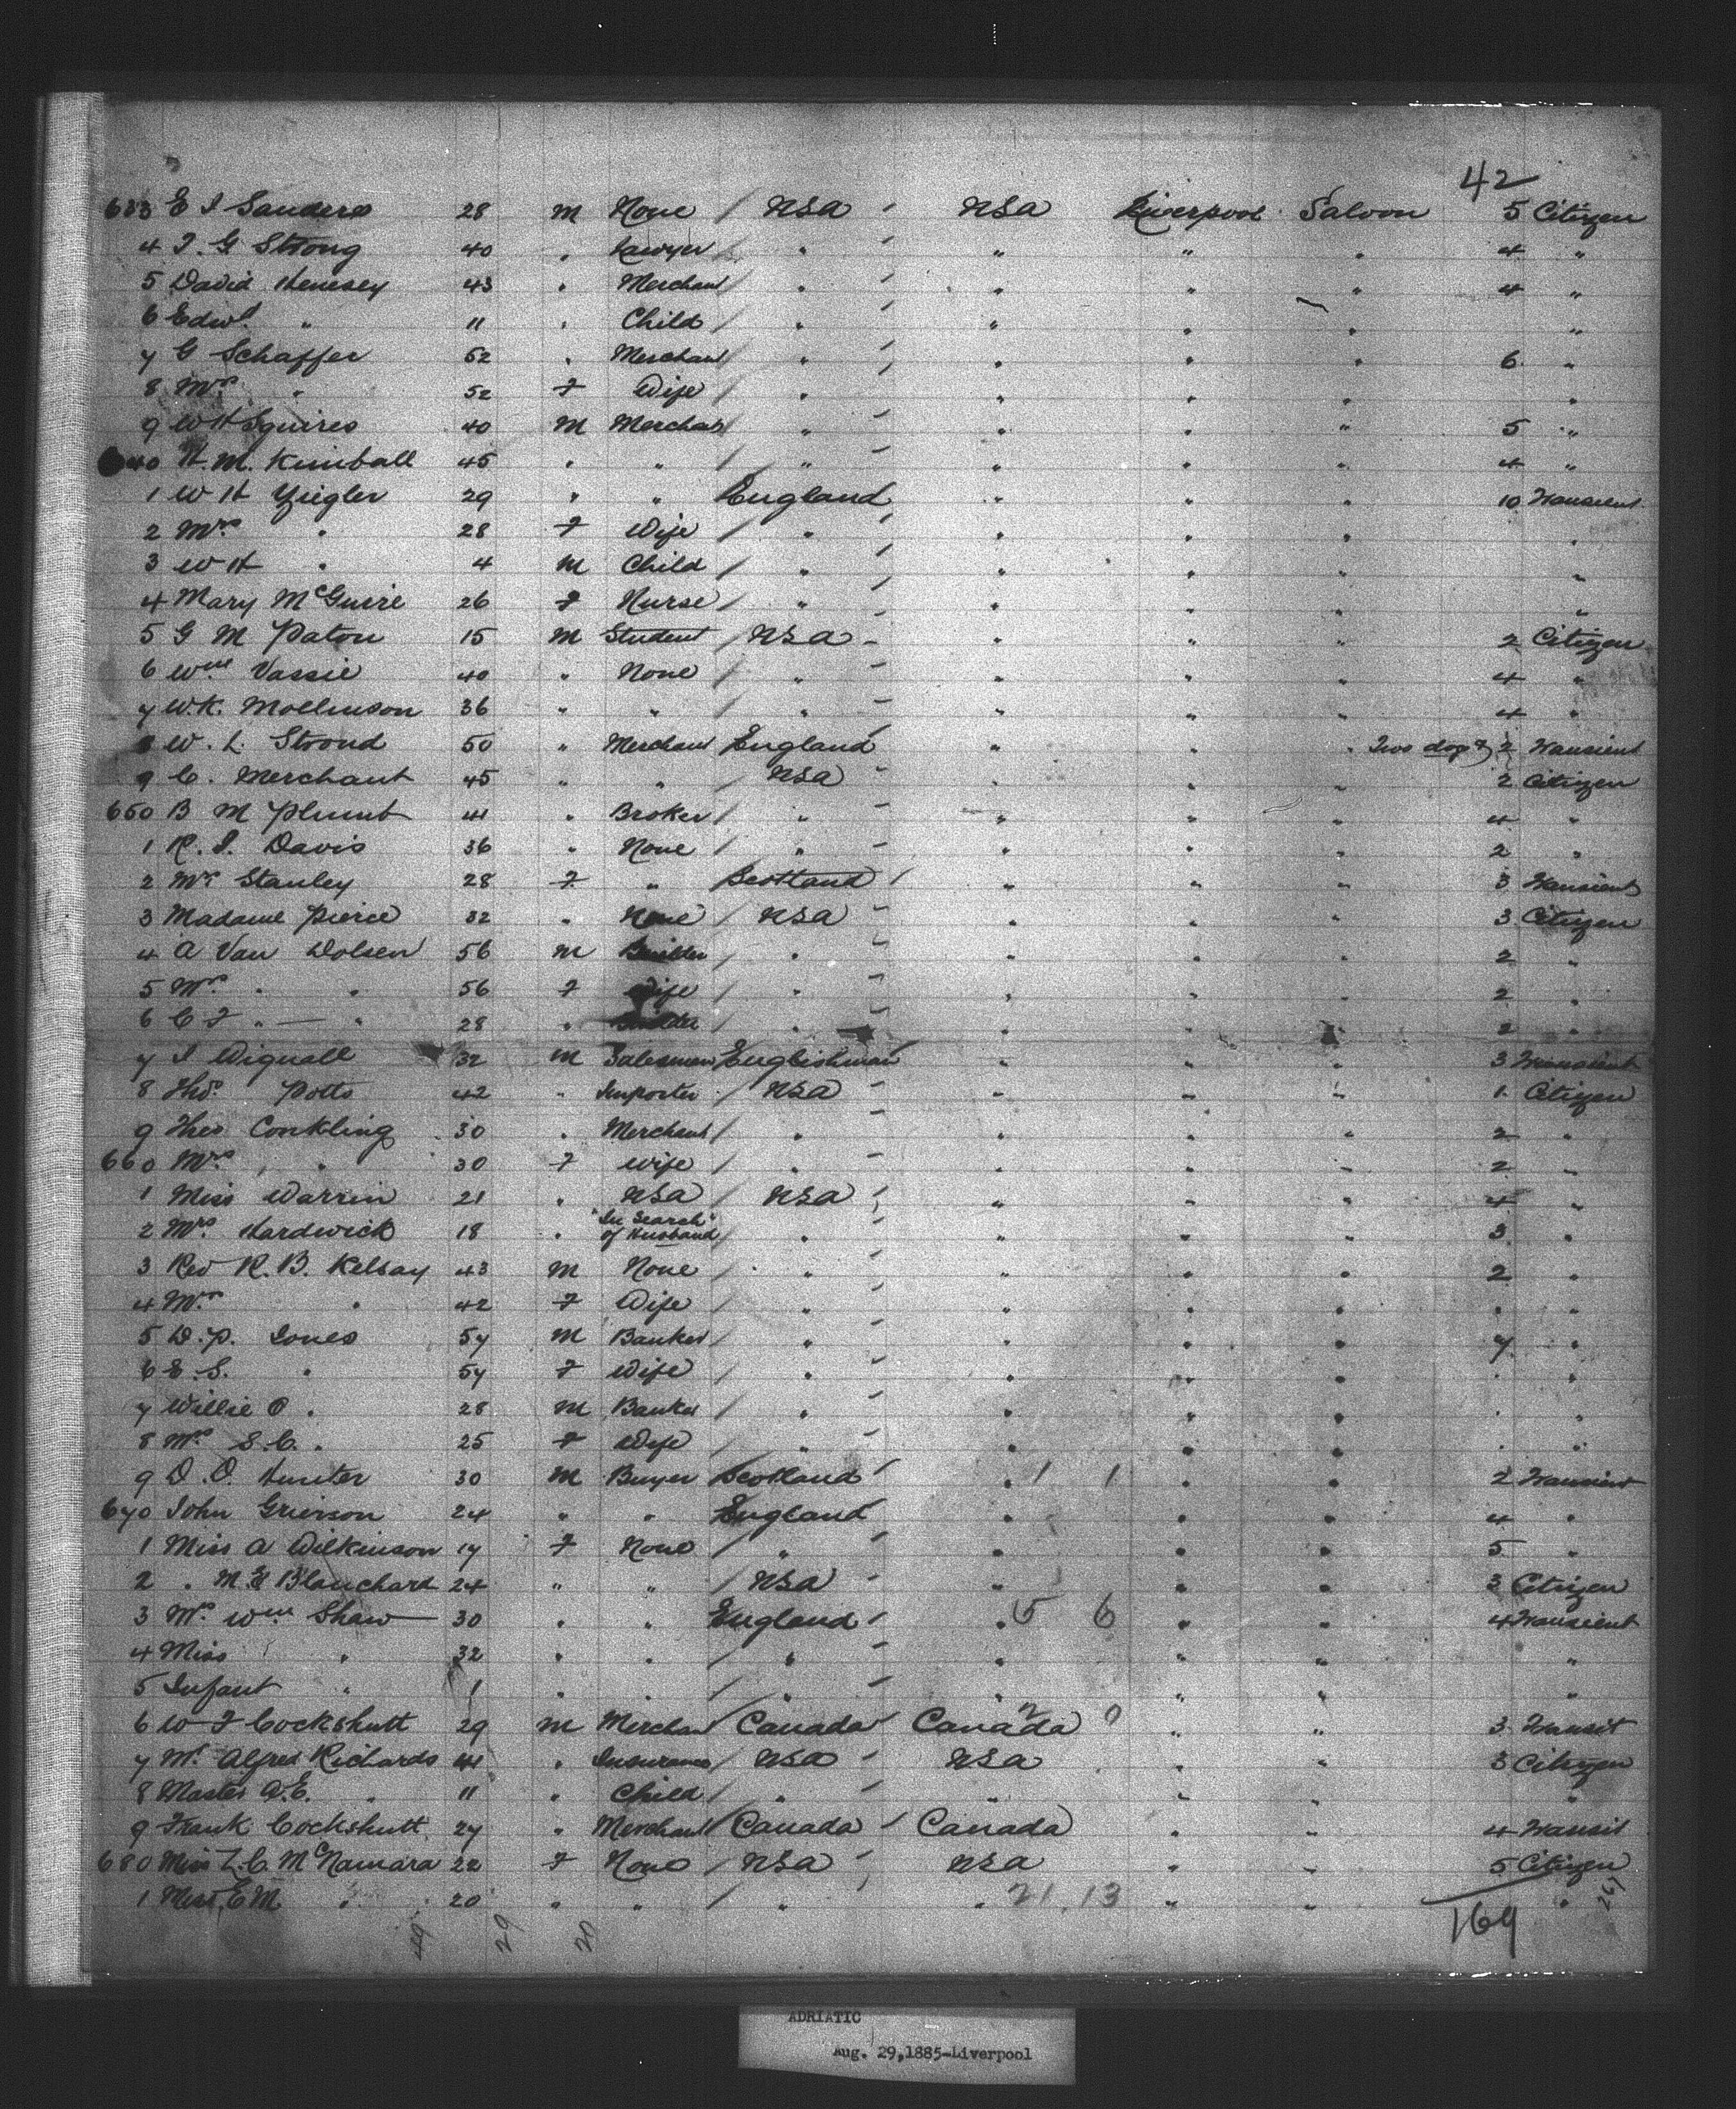 42
633 E I Sanders 28 M None / USA USA Liverpool Saloon 5 Citizen
4 T. G Strong 40 " Lawyer / " " " " 4 "
5 David Henesey 43 " Merchant / " " " " 4 "
6 Edwd " 11 " Child / " " " " "
7 G Schaffer 52 " Merchant / " " " " 6 "
8 Mrs " 52 F Wife / " " " " "
9 W H Squires 40 M Merchant / " " " " 5 "
640 H. M. Kimball 45 " " / " " " " 4 "
1 W H Ziegler 29 " " England " " " 10 Transient
2 Mrs " 28 F Wife / " " " " "
3 W H " 4 M Child / " " " " "
4 Mary McGuire 26 F Nurse / " " " " "
5 G M Paton 15 M Student / USA " " " 2 Citizen
6 Wm Vassie 40 " None / " " " " 4 "
7 W. K. Mollinson 36 " " / " " " " 4 "
8 W. L. Stroud 50 " Merchant England " " " Two dogs 2 Transient
9 C. Merchant 45 " " USA " " " 2 Citizen
650 B M Plumb 41 " Broker / " " " " 4 "
1 R. I. Davis 36 " None / " " " " 2 "
2 Mrs Stanley 28 F " Scotland " " " 3 Transient
3 Madame Pierce 32 " None / USA " " " 3 Citizen
4 A Van Dolsen 56 M Builder / " " " " 2 "
5 Mrs " " 56 F Wife / " " " " 2 "
6 C F " — " 28 " Builder / " " " " 2 "
7 I Wignall 32 M Salesman Englishman " " " 3 Transient
8 Thos. Potts 42 " Importer / USA " " " 1 Citizen
9 Theo Conkling 30 " Merchant / " " " " 2 "
660 Mrs " 30 F Wife / " " " " 2 "
1 Miss Warrin 21 " USA / USA " " " 4 "
2 Mrs. Hardwick 18 " "In Search" of Husband / " " " " 3 "
3 Rev R. B. Kelsay 43 M None / " " " " 2 "
4 Mrs " 42 F Wife / " " " " " "
5 D. P. Jones 57 M Banker / " " " " 7 "
6 E. S. " 57 F Wife / " " " " " "
7 Willie O " 28 M Banker / " " " " " "
8 Mrs S. C. " 25 F Wife / " " " " " "
9 D. O. Hunter 30 M Buyer Scotland " 1 1 " " 2 Transient
670 John Grierson 24 " " England " " " 4 "
1 Miss A Wilkinson 17 F None / " " " " 5 "
2 " M. E Blanchard 24 " " / USA " " " 3 Citizen
3 Mrs Wm Shaw 30 " " England " 5 6 " " 4 Transient
4 Miss " 32 " " / " " " " "
5 Infant " 1 " " / " " " " "
6 W F Cockshutt 29 M Merchant Canada Canada " " 3 Transit
7 Mr. Alfred Richards 41 " Insurance / USA USA " " 3 Citizen
8 Master A. E. " 11 " Child / " " " " "
9 Frank Cockshutt 27 " Merchant Canada Canada " " 4 Transit
680 Miss L. C. McNamara 22 F None / USA USA " " 5 Citizen
1 Miss E M " 20 " " / " " 21 . 13 " " "
169
ADRIATIC
Aug. 29,1885-Liverpool